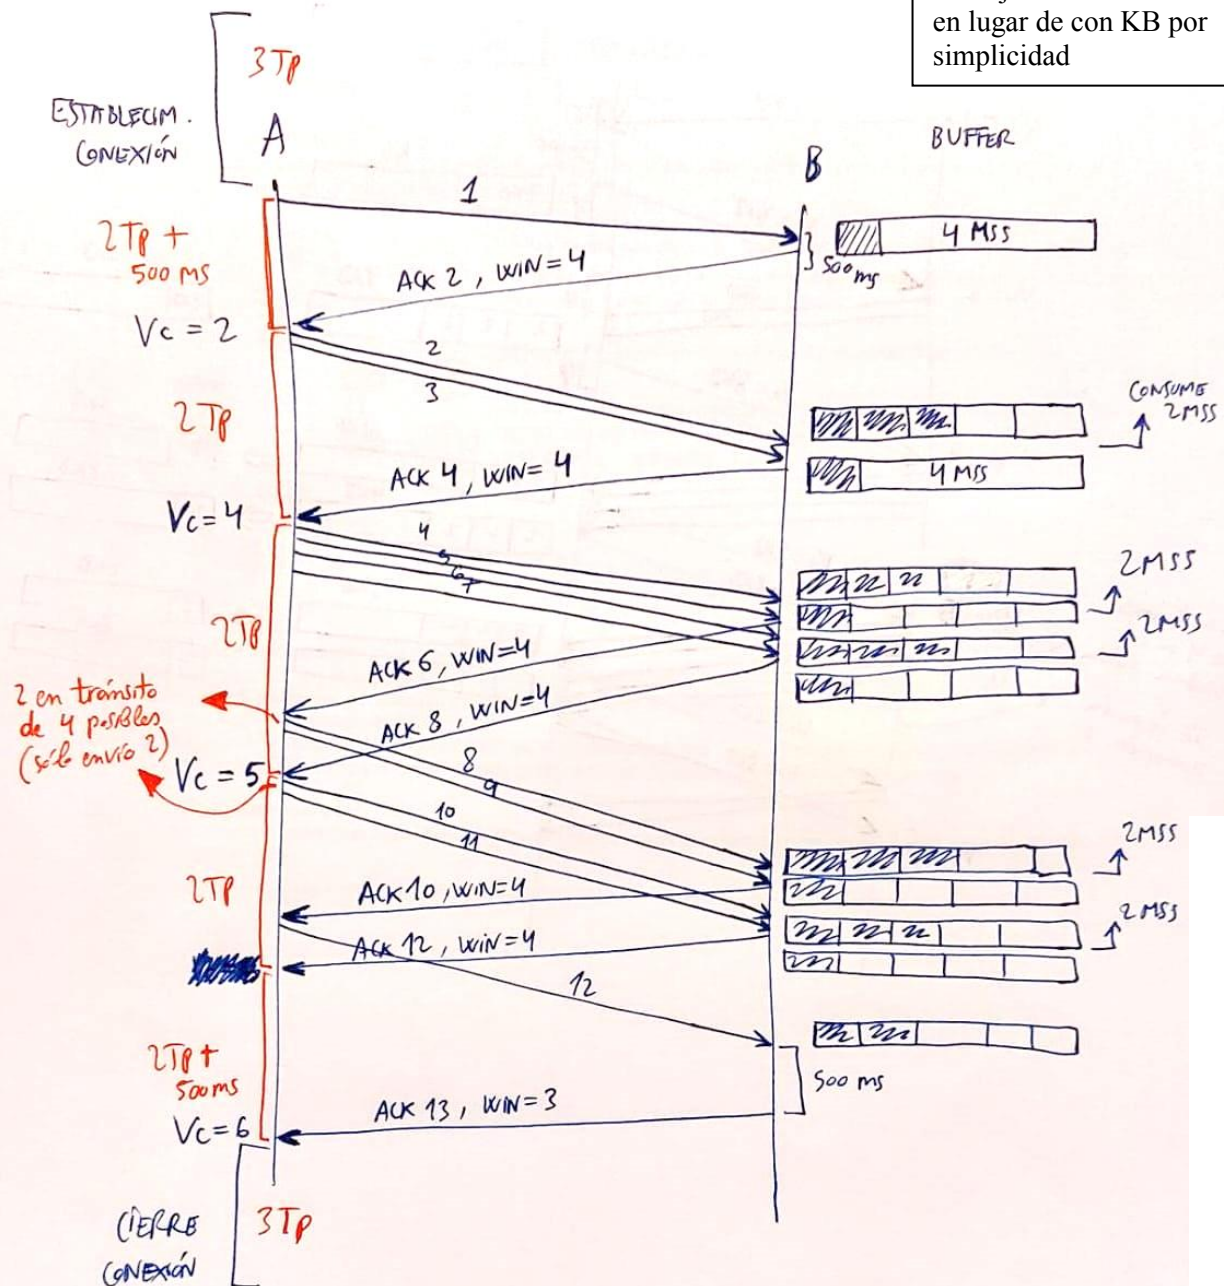 en lugar de con KB por
simplicidad
3Tp
ESTABLECIM.
CONEXIÓN
A
B
BUFFER
1
4 MSS
2Tp +
500 ms
ACK 2, WIN=4
500 ms
Vc = 2
2
3
CONSUME
2MSS
2Tp
ACK 4, WIN=4
4 MSS
Vc=4
4
5
6
7
2MSS
2Tp
2MSS
ACK 6, WIN=4
2 en tránsito
de 4 posibles
(sólo envío 2)
ACK 8, WIN=4
8
9
Vc = 5
10
11
2MSS
2Tp
ACK 10, WIN=4
2MSS
ACK 12, WIN=4
12
2Tp +
500ms
500 ms
ACK 13, WIN=3
Vc=6
CIERRE
CONEXIÓN
3Tp